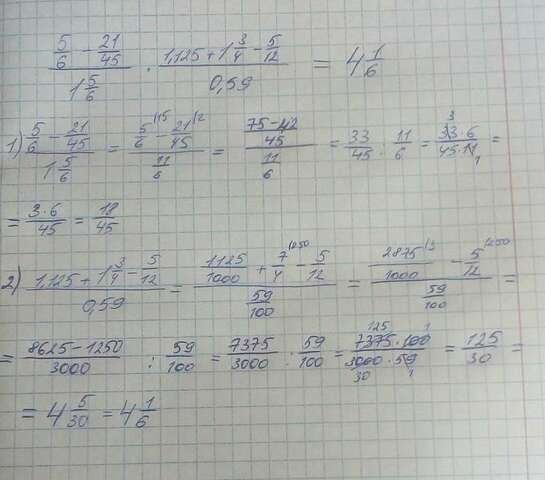 (5/6 - 21/45)/(1 5/6) · (1,125 + 1 3/4 - 5/12)/0,59 = 4 1/6
1) (5/6 - 21/45)/(1 5/6) = (5/6 \15 - 21/45 \2)/(11/6) = ((75-42)/45)/(11/6) = 33/45 : 11/6 = (33·6)/(45·11) 3 1 =
= (3·6)/45 = 18/45
2) (1,125 + 1 3/4 - 5/12)/0,59 = (1125/1000 + 7/4 \250 - 5/12)/(59/100) = (2875/1000 \3 - 5/12 \250)/(59/100) =
= (8625-1250)/3000 : 59/100 = 7375/3000 : 59/100 = (7375·100)/(3000·59) 125 1 30 1 = 125/30 =
= 4 5/30 = 4 1/6